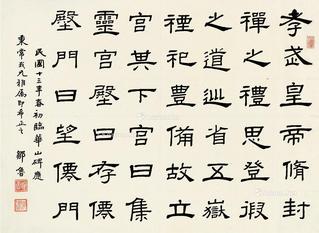 孝武皇帝脩封
禪之禮思登徦
之道巡省五嶽
禋祀豊備故立
宮其下宮曰集
靈宮壂曰存僊
壂門曰望僊門
民國十三年春初臨華山碑應
東常我兄雅属即希正之 鄒魯